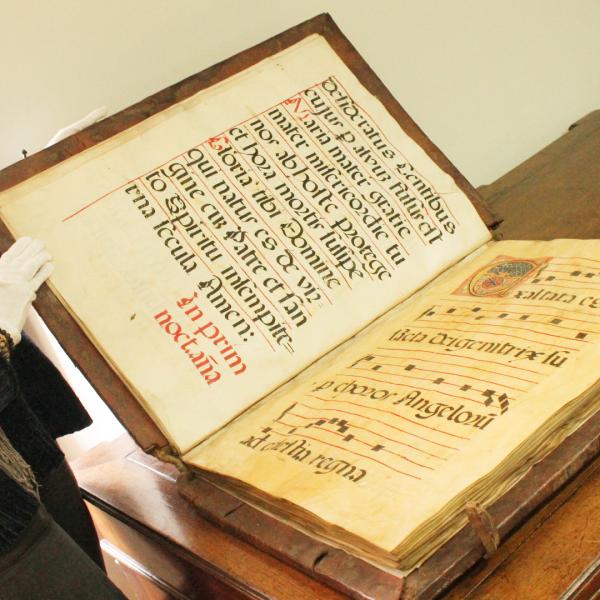 desideratus gentibus
cujus p alvum fusus est
Maria mater gratie
mater misericordie tu
nos ab hoste protege
et hora mortis susipe
Gloria tibi Domine
qui natus es de vir
gine cū Patre et san
to Spiritu insempite=
rna secula Amen:
In prim
noctāna
Exaltata es
sācta Dei genitrix sū
p choros Angelorū
ad celestia regna